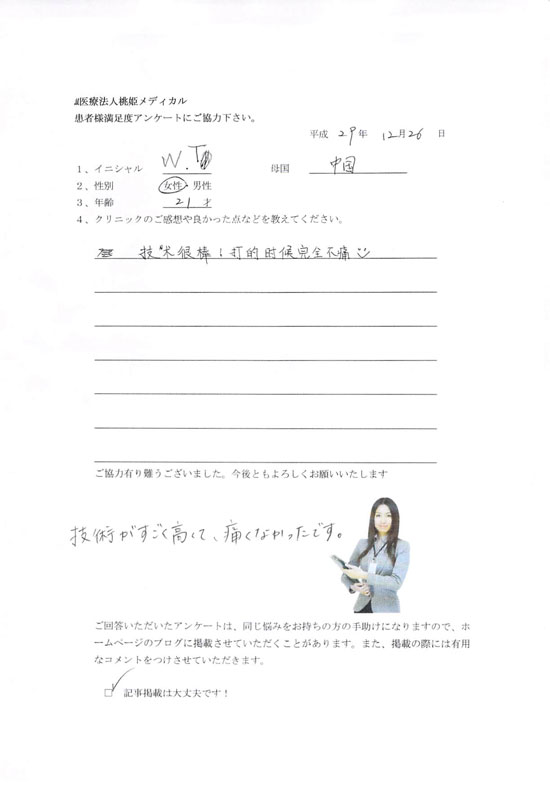 医療法人桃姫メディカル
患者様満足度アンケートにご協力下さい。
平成 29年 12月26 日
1、イニシャル W.T 母国 中国
2、性別 女性・男性
3、年齢 21 才
4、クリニックのご感想や良かった点などを教えてください。
技术很棒；打的时候完全不痛
ご協力有り難うございました。今後ともよろしくお願いいたします
技術がすごく高くて、痛くなかったです。
ご回答いただいたアンケートは、同じ悩みをお持ちの方の手助けになりますので、ホ
ームページのブログに掲載させていただくことがあります。また、掲載の際には有用
なコメントをつけさせていただきます。
□ 記事掲載は大丈夫です！